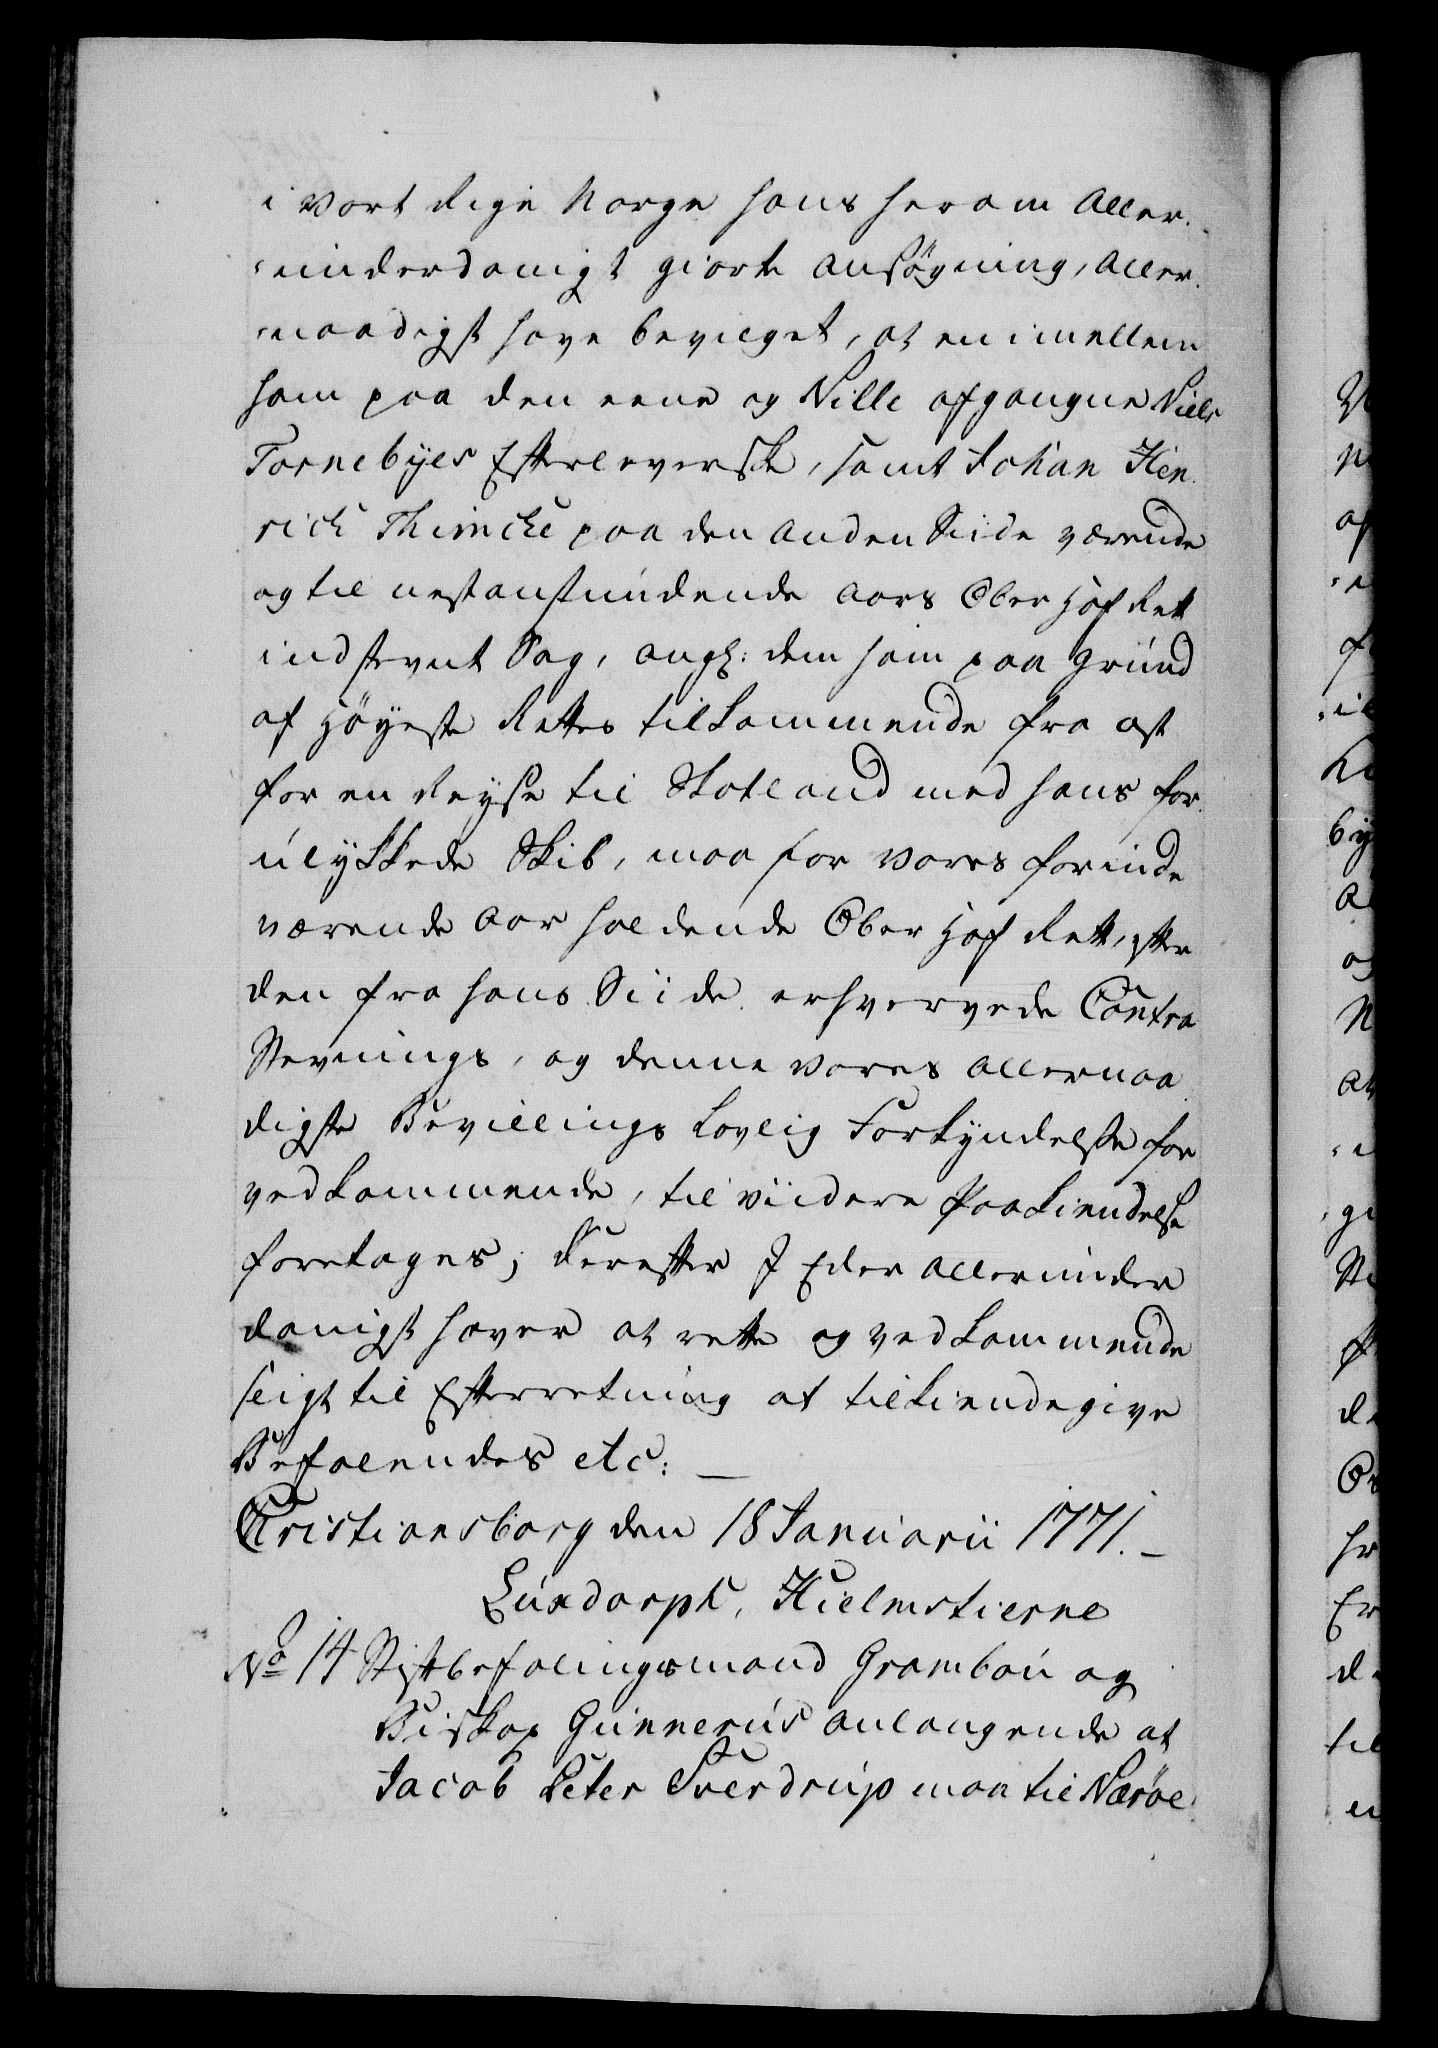 i Vort Rige Norge hans herom Aller-
underdanigst giorte Ansøgning, Aller-
naadigst have bevilget, at en imellem
ham paa den eene og Nille afgangne Niels
Tornebyes Efterleverske, samt Johan Hen-
rich Thimcke paa den Anden Siide værende
og til nestanstundende Aars Ober Hof Rett
indstevnt Sag, angl: dem ham paa Grund
af Höyeste Rettes tilkommende Fragt
for en Reyse til Skotland med hans for-
ulykkede Skib, maa for Vores forinde-
værende Aar holdende Ober Hof Rett, efter
den fra hans Siide erhvervede Contra
Stevnings, og denne Vores Allernaa-
digste Bevillings Lovlig Forkyndelse for
vedkommende, til viidere Paakiendelse
foretages; Derefter I Eder Allerunder-
danigst haver at rette og vedkommende
sligt til Efterretning at tilkiendegive
Befalendes etc: —
Christiansborg den 18 Januarii 1771. —
Luxdorph, Hielmstierne
No 14 Stiftbefalingsmand Grambou og
Biskop Gunnerus anlangende at
Jacob Peter Sverdrup maa til Nærøe